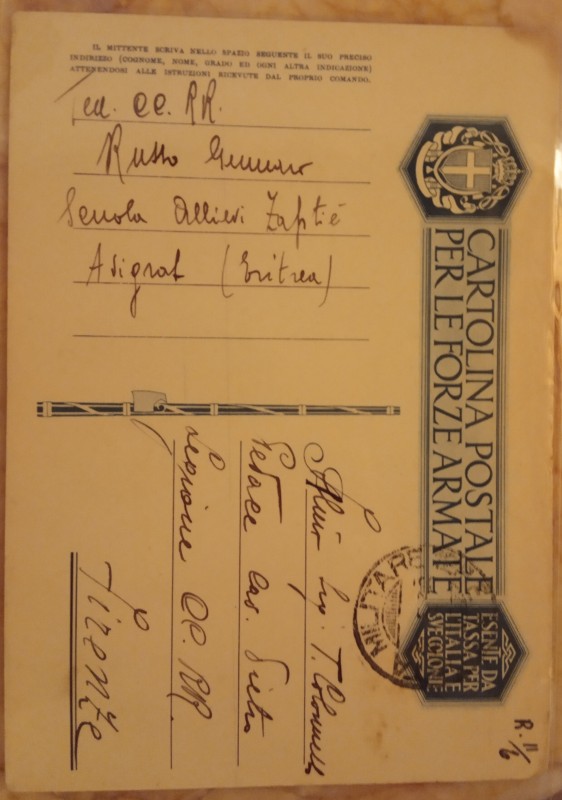 IL MITTENTE SCRIVA NELLO SPAZIO SEGUENTE IL SUO PRECISO
INDIRIZZO (COGNOME, NOME, GRADO ED OGNI ALTRA INDICAZIONE)
ATTENENDOSI ALLE ISTRUZIONI RICEVUTE DAL PROPRIO COMANDO.
CC. RR.
Russo Gennaro
Scuola Allievi Zaptié
Adigrat (Eritrea)
CARTOLINA POSTALE
PER LE FORZE ARMATE
ESENTE DA
TASSA PER
L'ITALIA E
SUE COLONIE
R. 11/6
T. Colonnello
Cav. Pietro
Legione CC. RR.
Firenze